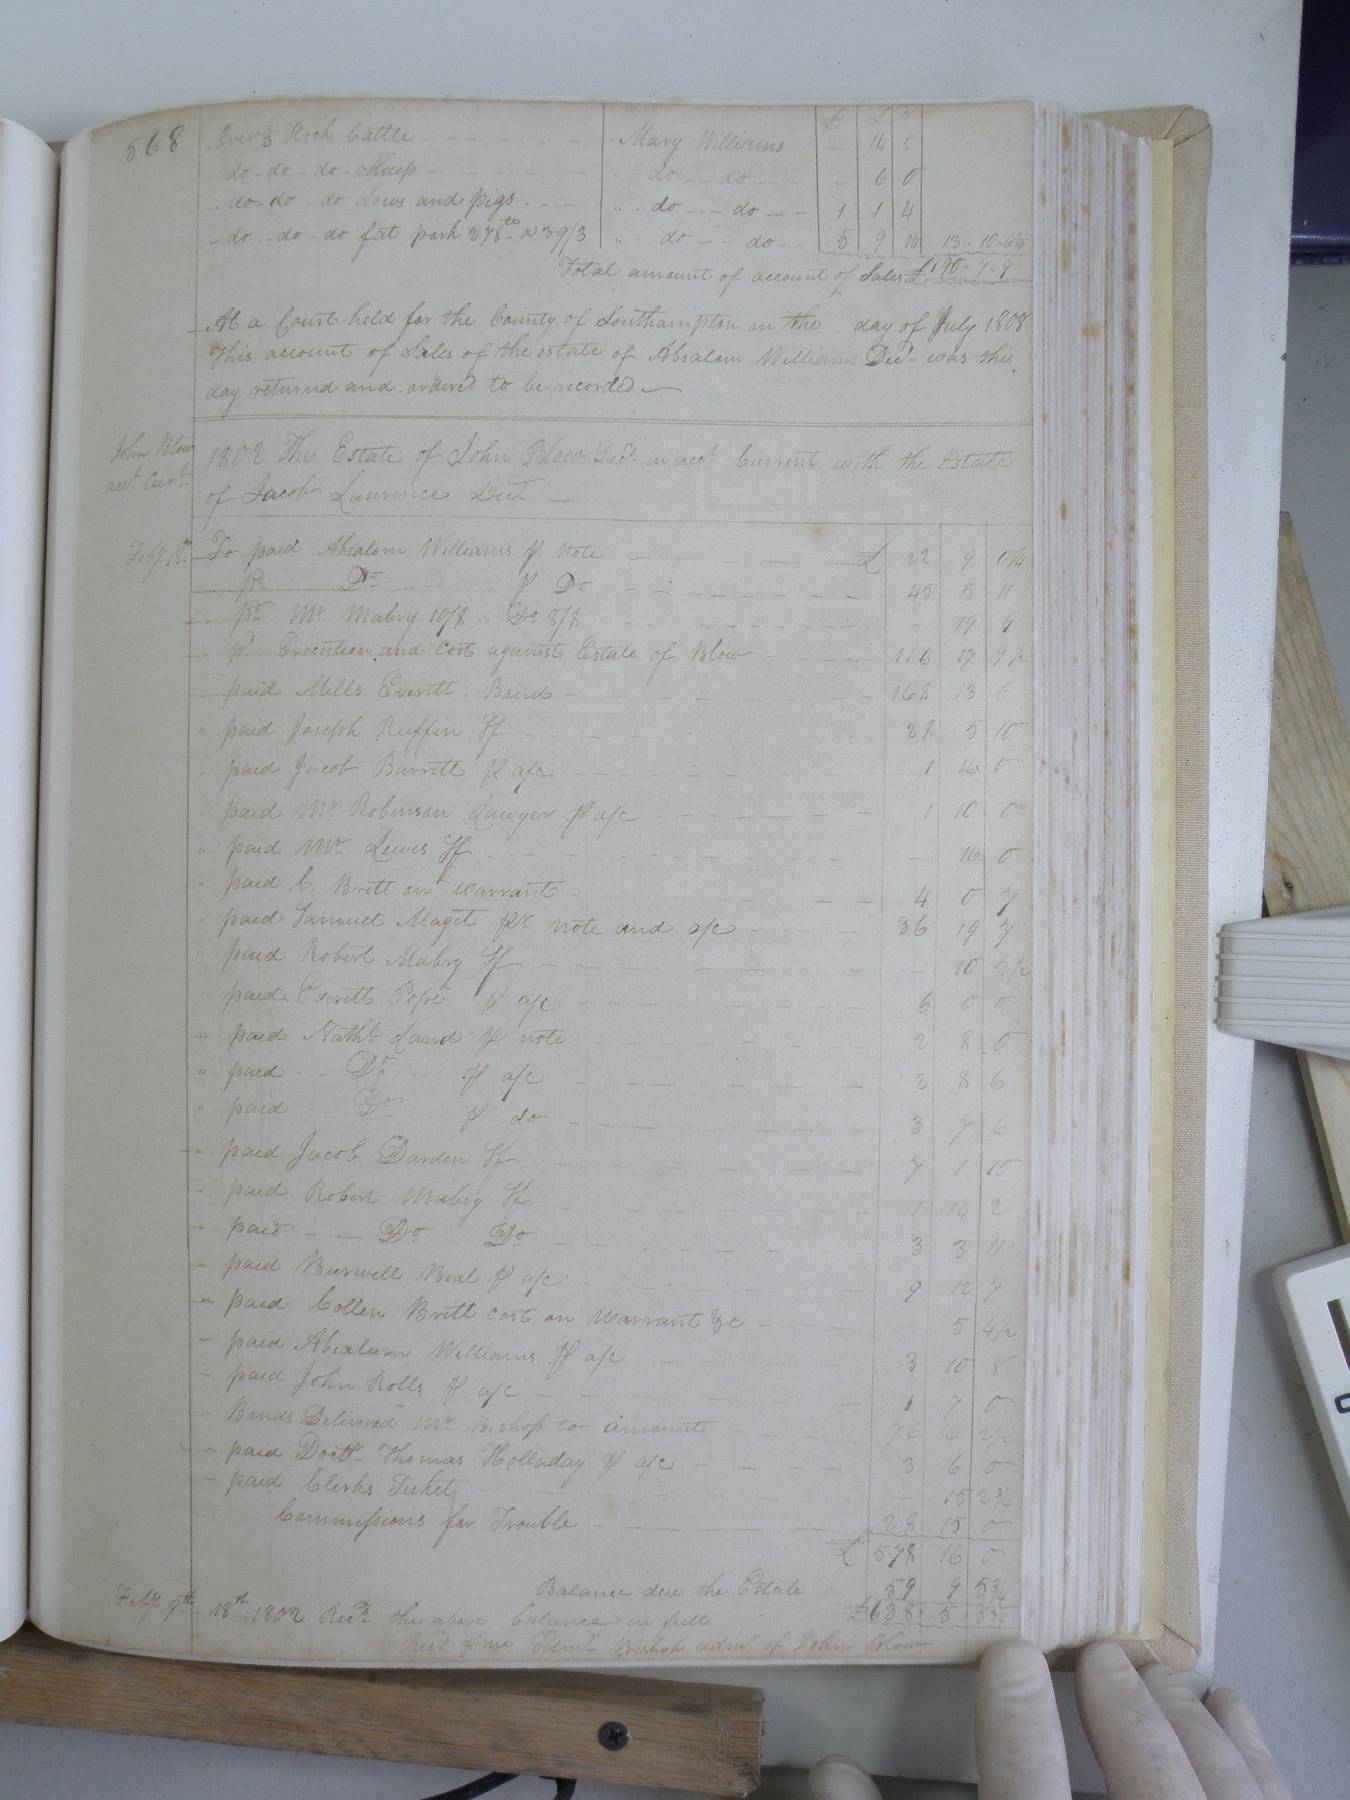 568
Over 5 Stock Cattle Mary Williams 14
do do do Sheep do do 6 0
do do do Sows and pigs do do 1 1 4
do do do fat pork 278 a 39/3 do do 5 9 13 10
Total amount of account of Sales £190 7 9
At a Court held for the County of Southampton on the day of July 1808
This account of Sales of the estate of Absalom Williams Decd. was this
day returnd and ordered to be recorded
John Blow
acct. Curt.
1802 The Estate of John Blow Decd. in acct. Current with the Estate
of Jacob Laurence Decd.
Feby. 18 To paid Absalom Williams p note £ 22 9
pd Do p Do 45 5 11
pd Mr Mabry 10/8 Do 8/8 19 4
pd Execution and Cost against Estate of Blow 116 17
paid Mills Everitt Band 168 13 6
paid Joseph Ruffin 28 5 10
paid Jacob Barrett p a/c 1 16 0
paid Mr Robinson Lawyer p a/c 1 10 0
paid Mr Lewis 16 0
paid C. Britt on warrant 4 0 7
paid Samuel Maget pr note and a/c 36 19 7
paid Robert Mabry 10 5 1/2
paid Everitt Pope p a/c 6 0 0
paid Nathl. Land p note 2 8 0
paid Do p a/c 2 8 6
paid Do p do 3 7 6
paid Jacob Darden 7 1 10
paid Robert Mabry 1 14 2
paid Do Do 3 3 11
paid Burwell Beal p a/c 9 12 7
paid Collen Britt cost on Warrant &c 5 4 1/2
paid Absalum Williams p a/c 3 10 8
paid John Rolls p a/c 1 7 0
Bands Delivered Mr Bishop to amount 76 16 2 1/2
paid Doctt. Thomas Holladay p a/c 3 6 0
paid Clerks Ticket 15 2 3/4
Commissions for Trouble 28 15 0
£ 578 16 0
Balance due the Estate 59 9 5 3/4
Feby. 9th 18th 1802 Recd. the above balance in full £638 5 5 3/4
Recd. Edmd. Bishop admr of John Blow